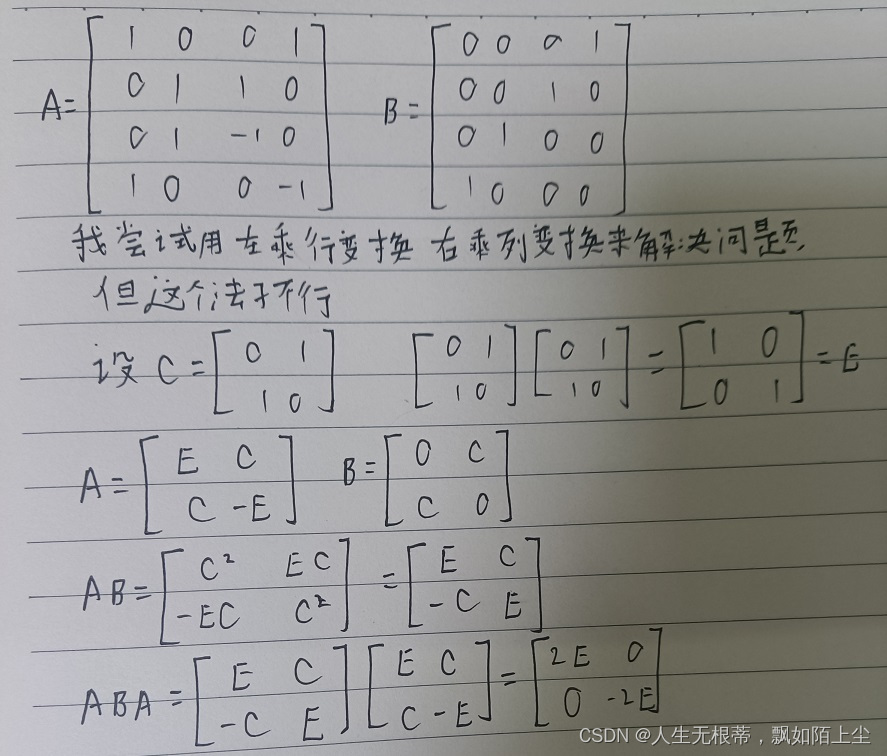 A= [ 1 0 0 1
0 1 1 0
0 1 -1 0
1 0 0 -1 ] B= [ 0 0 0 1
0 0 1 0
0 1 0 0
1 0 0 0 ]
我尝试用左乘行变换 右乘列变换来解决问题,
但这个法子不行
设 C= [ 0 1
1 0 ] [ 0 1
1 0 ] [ 0 1
1 0 ] = [ 1 0
0 1 ] = E
A= [ E C
C -E ] B= [ 0 C
C 0 ]
AB= [ C² EC
-EC C² ] = [ E C
-C E ]
ABA = [ E C
-C E ] [ E C
C -E ] = [ 2E 0
0 -2E ]
CSDN @人生无根蒂，飘如陌上尘